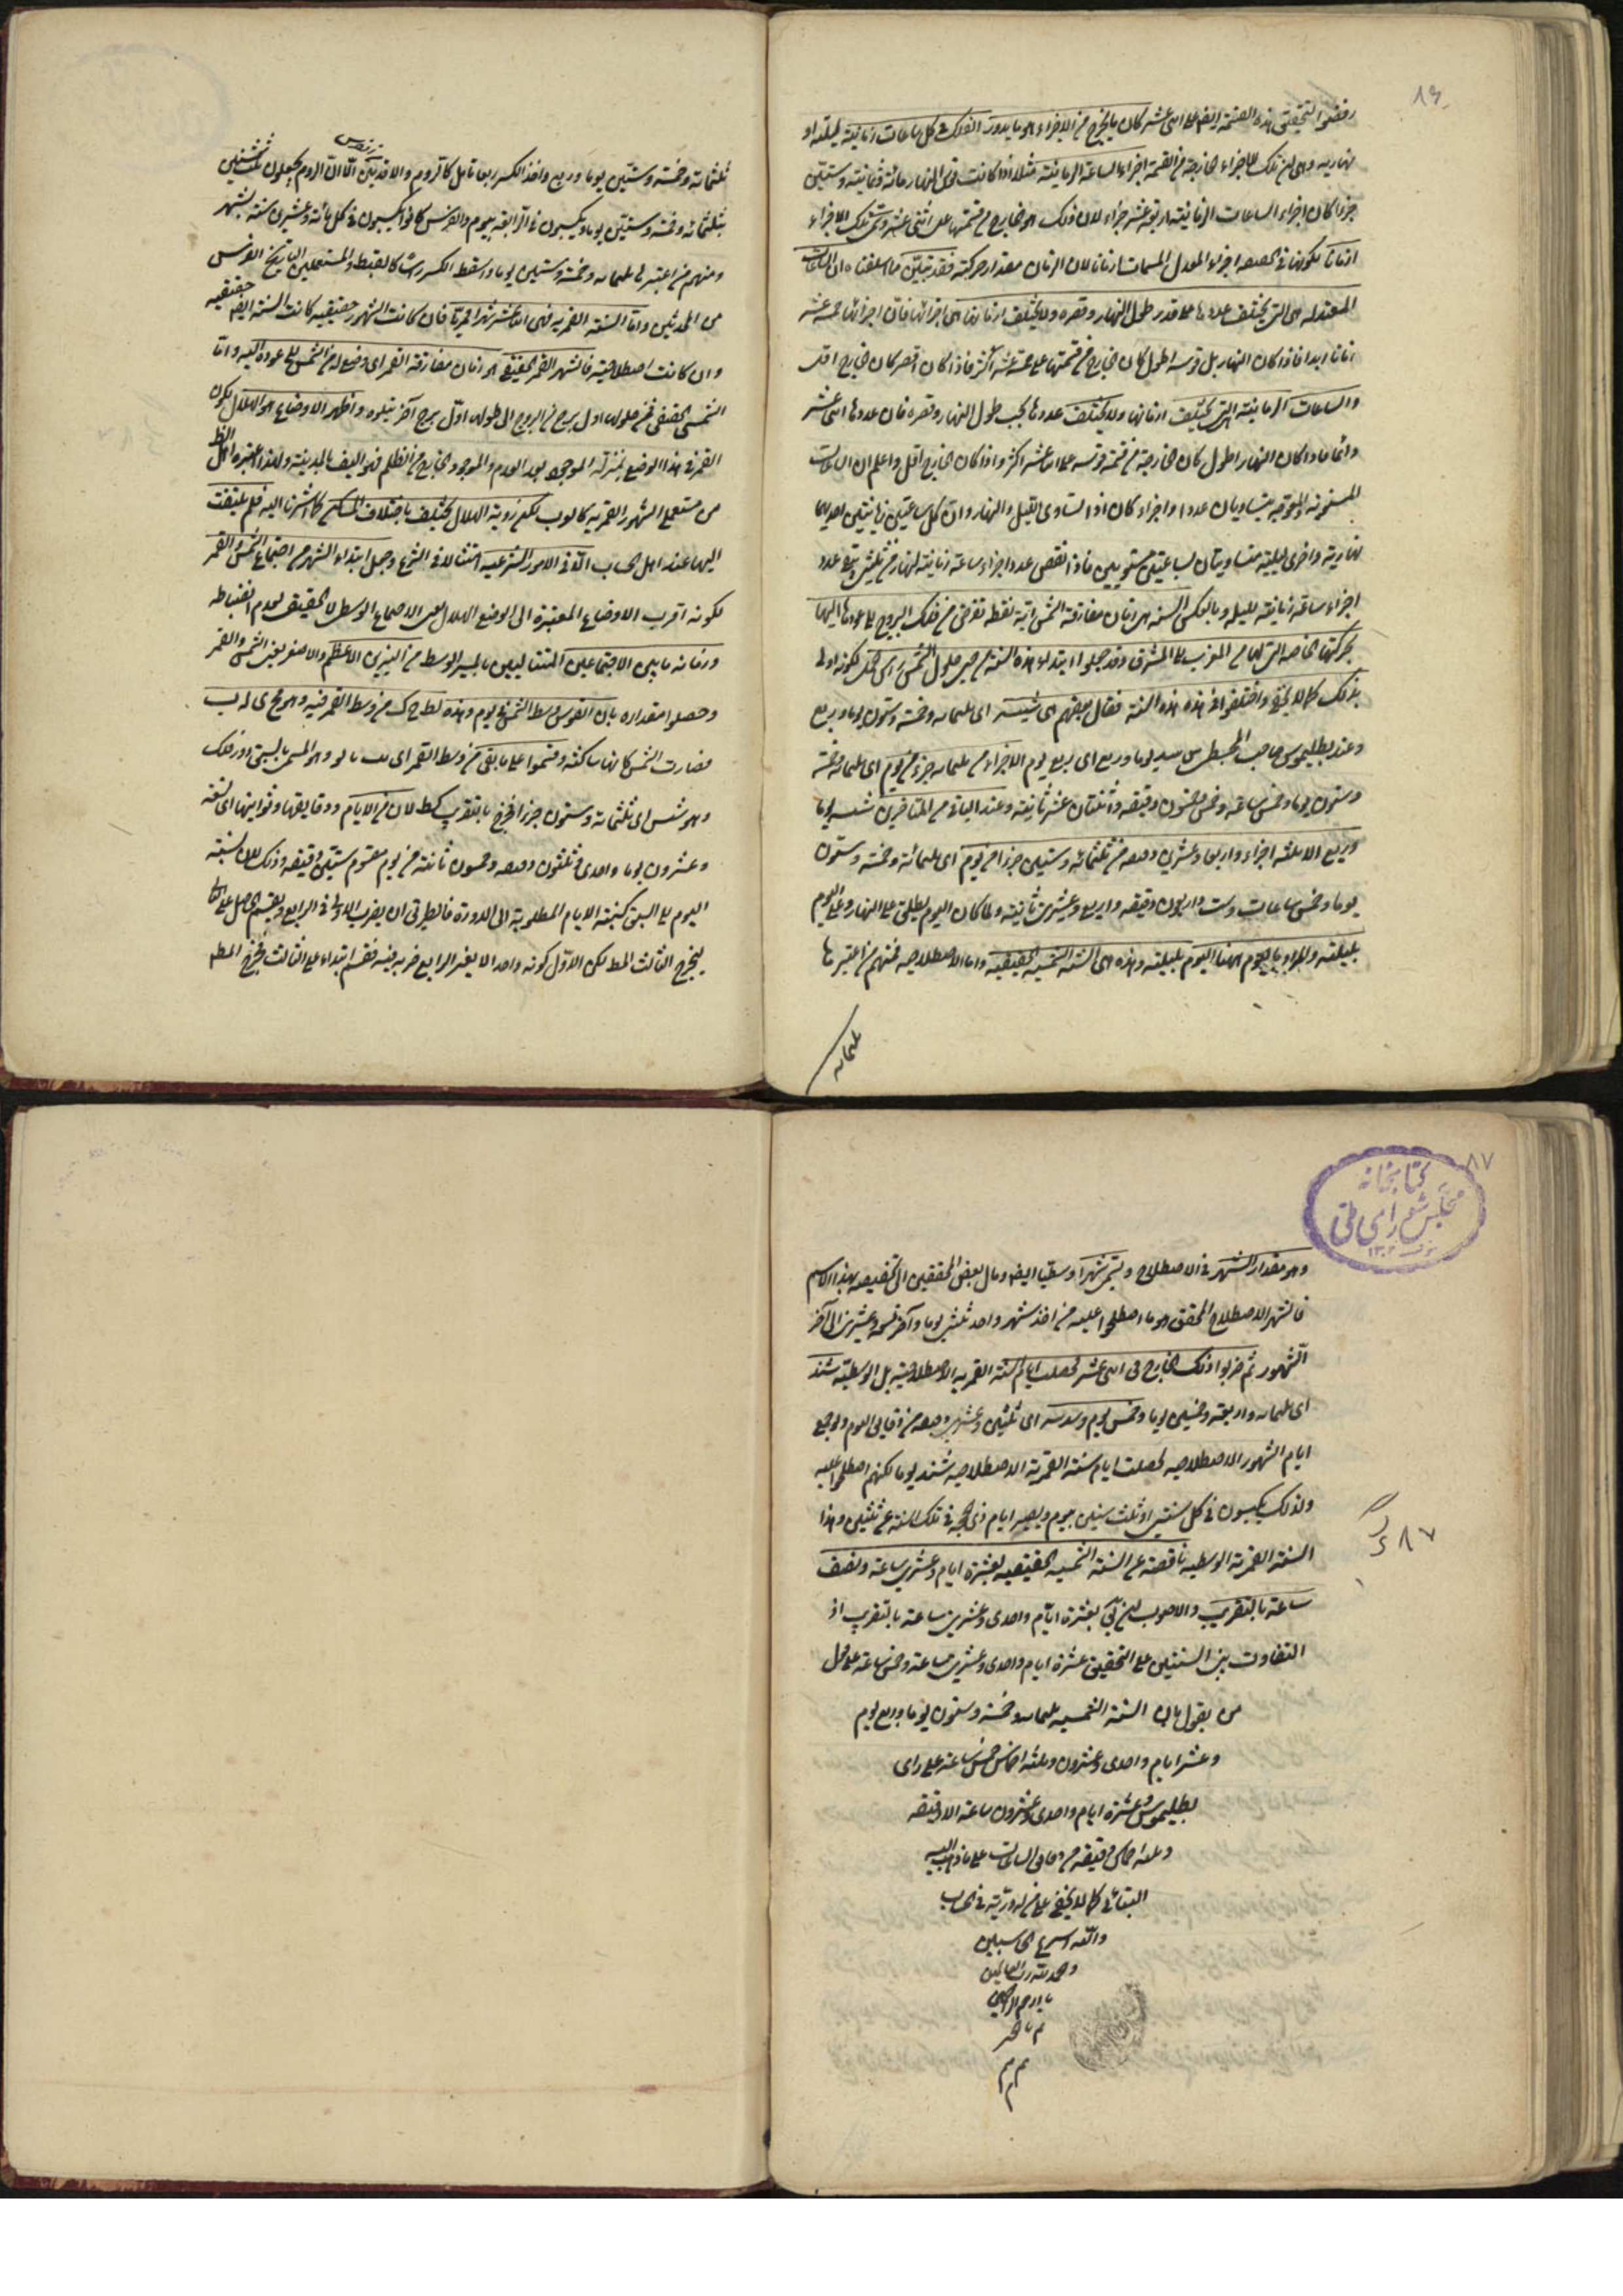 كان ما يخرج من الاجزاء هو ما يدور الفلك في كل ساعات زمانية ليلته او
نهاريه وهي ان تلك الاجزاء الخارجة من القسمة اجزاء الساعة الزمانية مثلا اذا كانت قوس النهار مائة وثمانية وستين
جزءا كان اجزاء الساعات الزمانية اربعة عشر جزاء لان ذلك هو الخارج من قسمتها على اثنى عشر وتسمى تلك الاجزاء
ازمانا لكونها في الحقيقه اجزاء المعدل المسمات ازمانا لان الزمان مقدار حركته فقد تبين مما اسلفنا ان الساعات
المعتدله هي التي يختلف عددها على قدر طول النهار وقصره ولا يختلف ازمانها اي اجزائها فان اجزائها خمسه عشر
ازمانا ابدا فاذا كان النهار بل قوسه اطول كان الخارج من قسمتها على خمسة عشر اكثر فاذا كان اقصر كان الخارج اقل
والساعات الزمانية التي يختلف ازمانها ولا يختلف عددها بحسب طول النهار وقصره فان عددها اثنى عشر
دائما فاذا كان النهار اطول كان الخارجة من قسمة قوسه على اثنا عشر اكثر واذا كان الخارج اقل واعلم ان الساعات
المستوية والمعوجة يتساويان عددا واجزاء كان اذا تساوى الليل والنهار وان كل ساعتين زمانيتين احديهما
نهارية واخرى ليلية متساويتان لساعتين مستويتين فاذا نقص عدد اجزاء ساعة زمانية لنهار من ثلثين بقى عدد
اجزاء ساعة زمانية لليله وبالعكس السنه هي زمان مفارقة الشمس اية نقطه تفرض من فلك البروج الى عودها اليها
بحركتها الخاصه التي لها من المغرب الى المشرق وقد جعلوا ابتداء هذه السنة من حين حلول الشمس راس الحمل لكونه اولى
بذلك كما لا يخفى واختلفوا في هذه السنة فقال بعضهم هي شسه اى ثلثمائه وخمسة وستون يوما وربع
وعند بطليموس صاحب المجسطى يوما وربع اى ربع يوم الا جزاء من ثلثمائه جزء من يوم اى ثلثمائة وخمسة
وستون يوما وخمس ساعة وخمس وخمسون دقيقه واثنتان عشر ثانية وعند الباقى من المتاخرين شسه يوما
وربع الا ثلثه اجزاء واربعا وعشرين دقيقه من ثلثمائة وستين جزءا من يوم اى ثلثمائة وخمسة وستون
يوما وخمس ساعات وست واربعون دقيقه واربع وعشرين ثانية ولما كان اليوم يطلق على النهار وعلى اليوم
بليلته والمراد باليوم ههنا اليوم بليلته وهذه هي السنة الشمسية الحقيقيه واما الاصطلاحيه فمنهم من اعتبرها
ثلثمائه
ثلثمائة وخمسة وستين يوما وربع واخذ الكسر ربعا تاما كالروم والاقدمين الا ان الروم يجعلون ثلث سنين
ثلثمائه وخمسه وستين يوما ويكبسون في الرابعه بيوم والفرس كانوا يكبسون في كل مائة وعشرين سنة بشهر
ومنهم من اعتبرها ثلثمائه وخمسة وستين يوما واسقط الكسر راسا كالقبط والمستعملين التاريخ الفرس
من المحدثين واما السنة القمريه فهى اثنا عشر شهرا قمريا فان كانت الشهور حقيقيه كانت السنة ايضا حقيقيه
وان كانت اصطلاحية فالشهر القمر الحقيقي هو زمان مفارقة القمر اى وضع له من الشمس الى عوده اليه واما
الشمسى الحقيقى فمن حلولها اول برج من البروج الى حلولها اول برج آخر يتلوه واظهر الاوضاع هو الهلال لكون
القمر في هذا الوضع بمنزلة الموجود بعد العدم والموجود الخارج من الظلم
من مستعملى الشهور القمريه كالعرب لكن روية الهلال يختلف باختلاف المساكن كما اشرنا اليه فلم يلتفت
اليها عند اهل الحساب الا في الامور الشرعيه امتثالا في الشرع وجعل ابتداء الشهر من اجتماع الشمس والقمر
لكونه اقرب الاوضاع المعتبرة الى الوضع الهلال الاجتماع الوسطى لا الحقيقى لعدم انضباطه
وزمانه ما بين الاجتماعين المتتاليين بالمسير الوسط من النيرين الاعظم والاصغر يعنى الشمس والقمر
وحصلوا مقداره بان القوس وسط الشمس في يوم وهذه نطح ك من وسط القمر فيه وهو يج ى له ب
فصارت الشمس كانها ساكنة وقسموا على ما بقى من وسط القمر اى وهو المسمى بالسبق دور الفلك
وهو شس اى ثلثمائة وستون جزءا فخرج بالتقريب كط لان من الايام ودقايقها وثوانيها اى تسعه
وعشرون يوما واحدى وثلثون دقيقه وخمسون ثانية من يوم مقسوم ستين دقيقه وذلك لان نسبة
اليوم الى السبق كنسبة الايام المطلوبة الى الدورة فالطريق ان يضرب الاول في الرابع ويقسم الحاصل على
ليخرج الثالث المط لكن الاول لكونه واحدا لا يغير الرابع ضربه فيه فقسم ابتداء على الثالث فيخرج المط
٨٧
كتابخانه
مجلس شوراى ملى
١٣٠٢
وهو مقدار الشهر في الاصطلاح ويسمى شهرا وسطيا ايضا ومال بعض المحققين الى تخصيصه بهذا الاسم
فالشهر الاصطلاح المحقق هو ما اصطلحوا عليه من اخذ شهر واحد ثلثين يوما وآخر تسعه وعشرين الى آخر
الشهور ثم ضربوا ذلك الخارج في اثنى عشر فحصلت ايام السنة القمريه الاصطلاحية بل الوسطية شند
اى ثلثمائه واربعة وخمسين يوما وخمس يوم وسدسه اى ثلثين وعشرين دقيقه من دقايق اليوم ولو جمع
ايام الشهور الاصطلاحيه لحصلت ايام سنة القمرية الاصطلاحيه شند يوما لكنهم اصطلحوا عليه
ولذلك يكبسون في كل سنتين او ثلث سنين بيوم ويصير ايام ذى الحجه في تلك السنة ثلثين وهذا
السنة القمرية الوسطيه ناقصة عن السنة الشمسيه الحقيقيه بعشرة ايام وعشرين ساعة ونصف
ساعة بالتقريب والاصوب بعشرة ايام واحدى وعشرين ساعة بالتقريب اذ
التفاوت بين السنتين على التحقيق عشرة ايام واحدى وعشرين ساعة وخمس ساعة على قول
من يقول بان السنة الشمسيه ثلثمائه وخمسة وستون يوما وربع يوم
وعشر ايام واحدى وعشرون وثلثة اخماس خمس ساعة على راى
بطليموس وعشرة ايام واحدى وعشرون ساعة الا دقيقه
وثلثه اخماس دقيقه من دقايق الساعات على ما ذهب اليه
البتانى كما لا يخفى على من له دربة في الحساب
والله اسرع الحاسبين
والحمد لله رب العالمين
يا ارحم الراحمين
٨٧